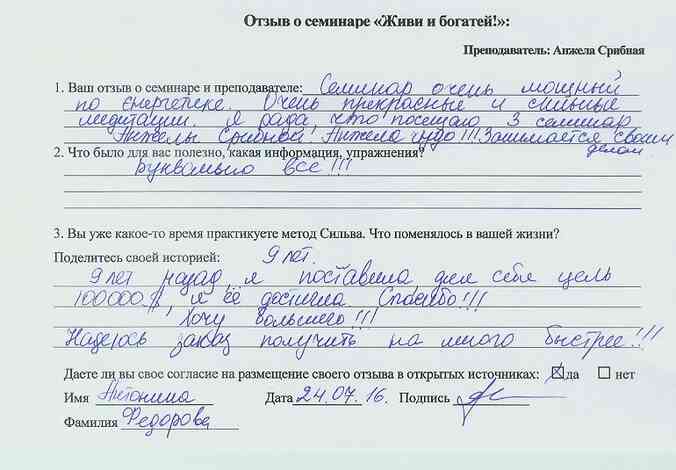 Отзыв о семинаре «Живи и богатей!»:
Преподаватель: Анжела Срибная
1. Ваш отзыв о семинаре и преподавателе: Семинар очень мощный
по енергетеке. Очень прекрасные и сильные
медитации. Я рада, что посещаю 3 семинар
Анжелы Срибной! Анжела чудо!!! Занимается своим
делом
2. Что было для вас полезно, какая информация, упражнения?
Буквально все!!!
3. Вы уже какое-то время практикуете метод Сильва. Что поменялось в вашей жизни?
Поделитесь своей историей: 9 лет.
9 лет назад я поставила для себя цель
100000 $, я её достигла. Спасибо!!!
Хочу большего!!!
Надеюсь заказ получить на много быстрее!!!
Даете ли вы свое согласие на размещение своего отзыва в открытых источниках: ☒ да ☐ нет
Имя Антонина Дата 24.07.16. Подпись
Фамилия Федорова